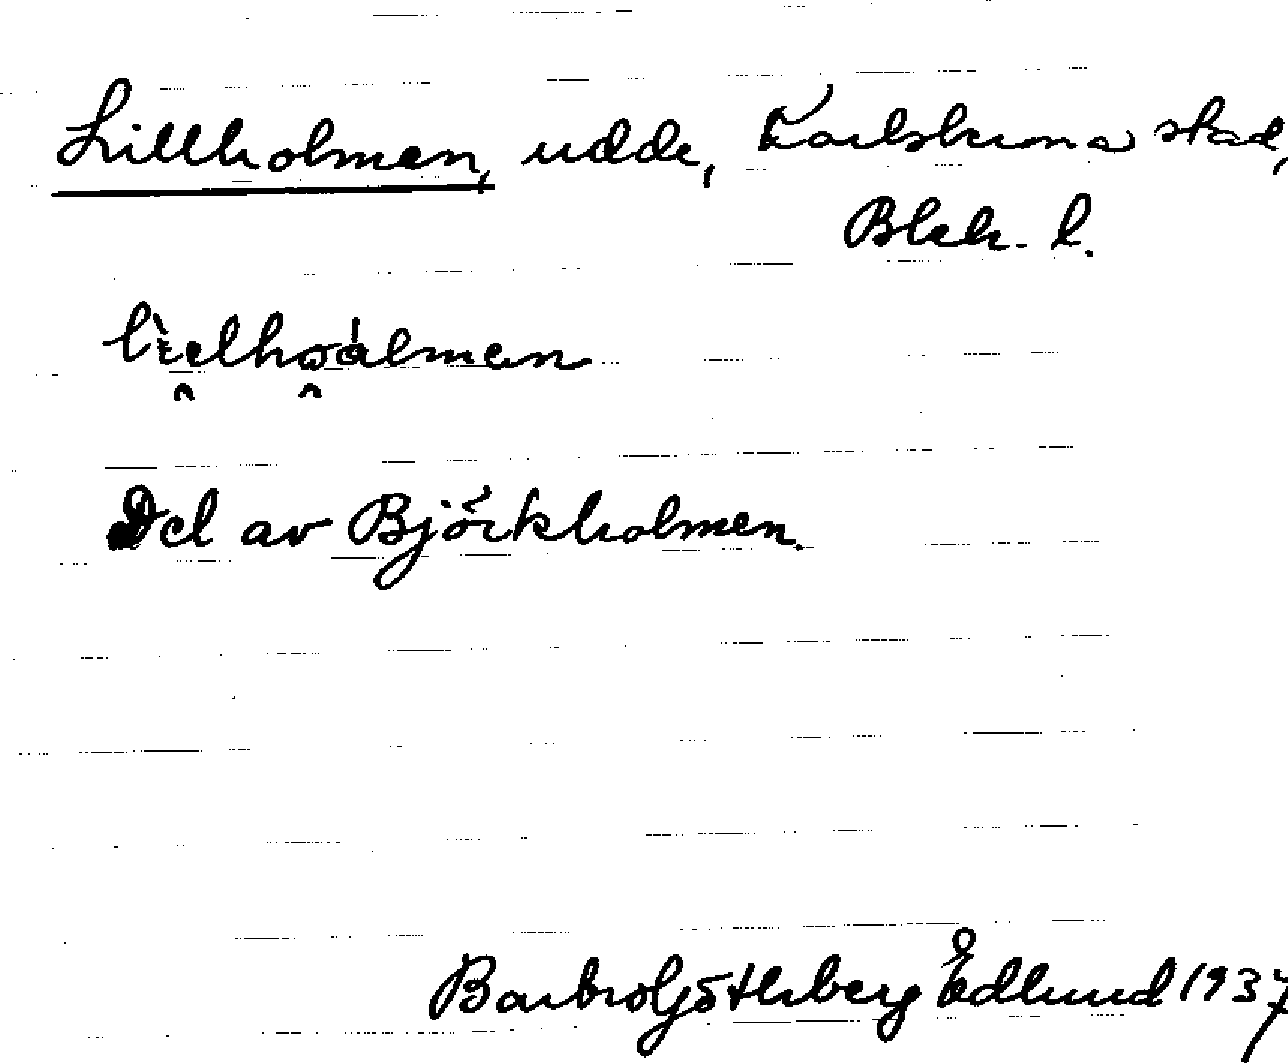 Lillholmen, udde, Karlskrona stad,
Blek. l.
Del av Björkholmen.
Barbro Götherberg Edlund 1937